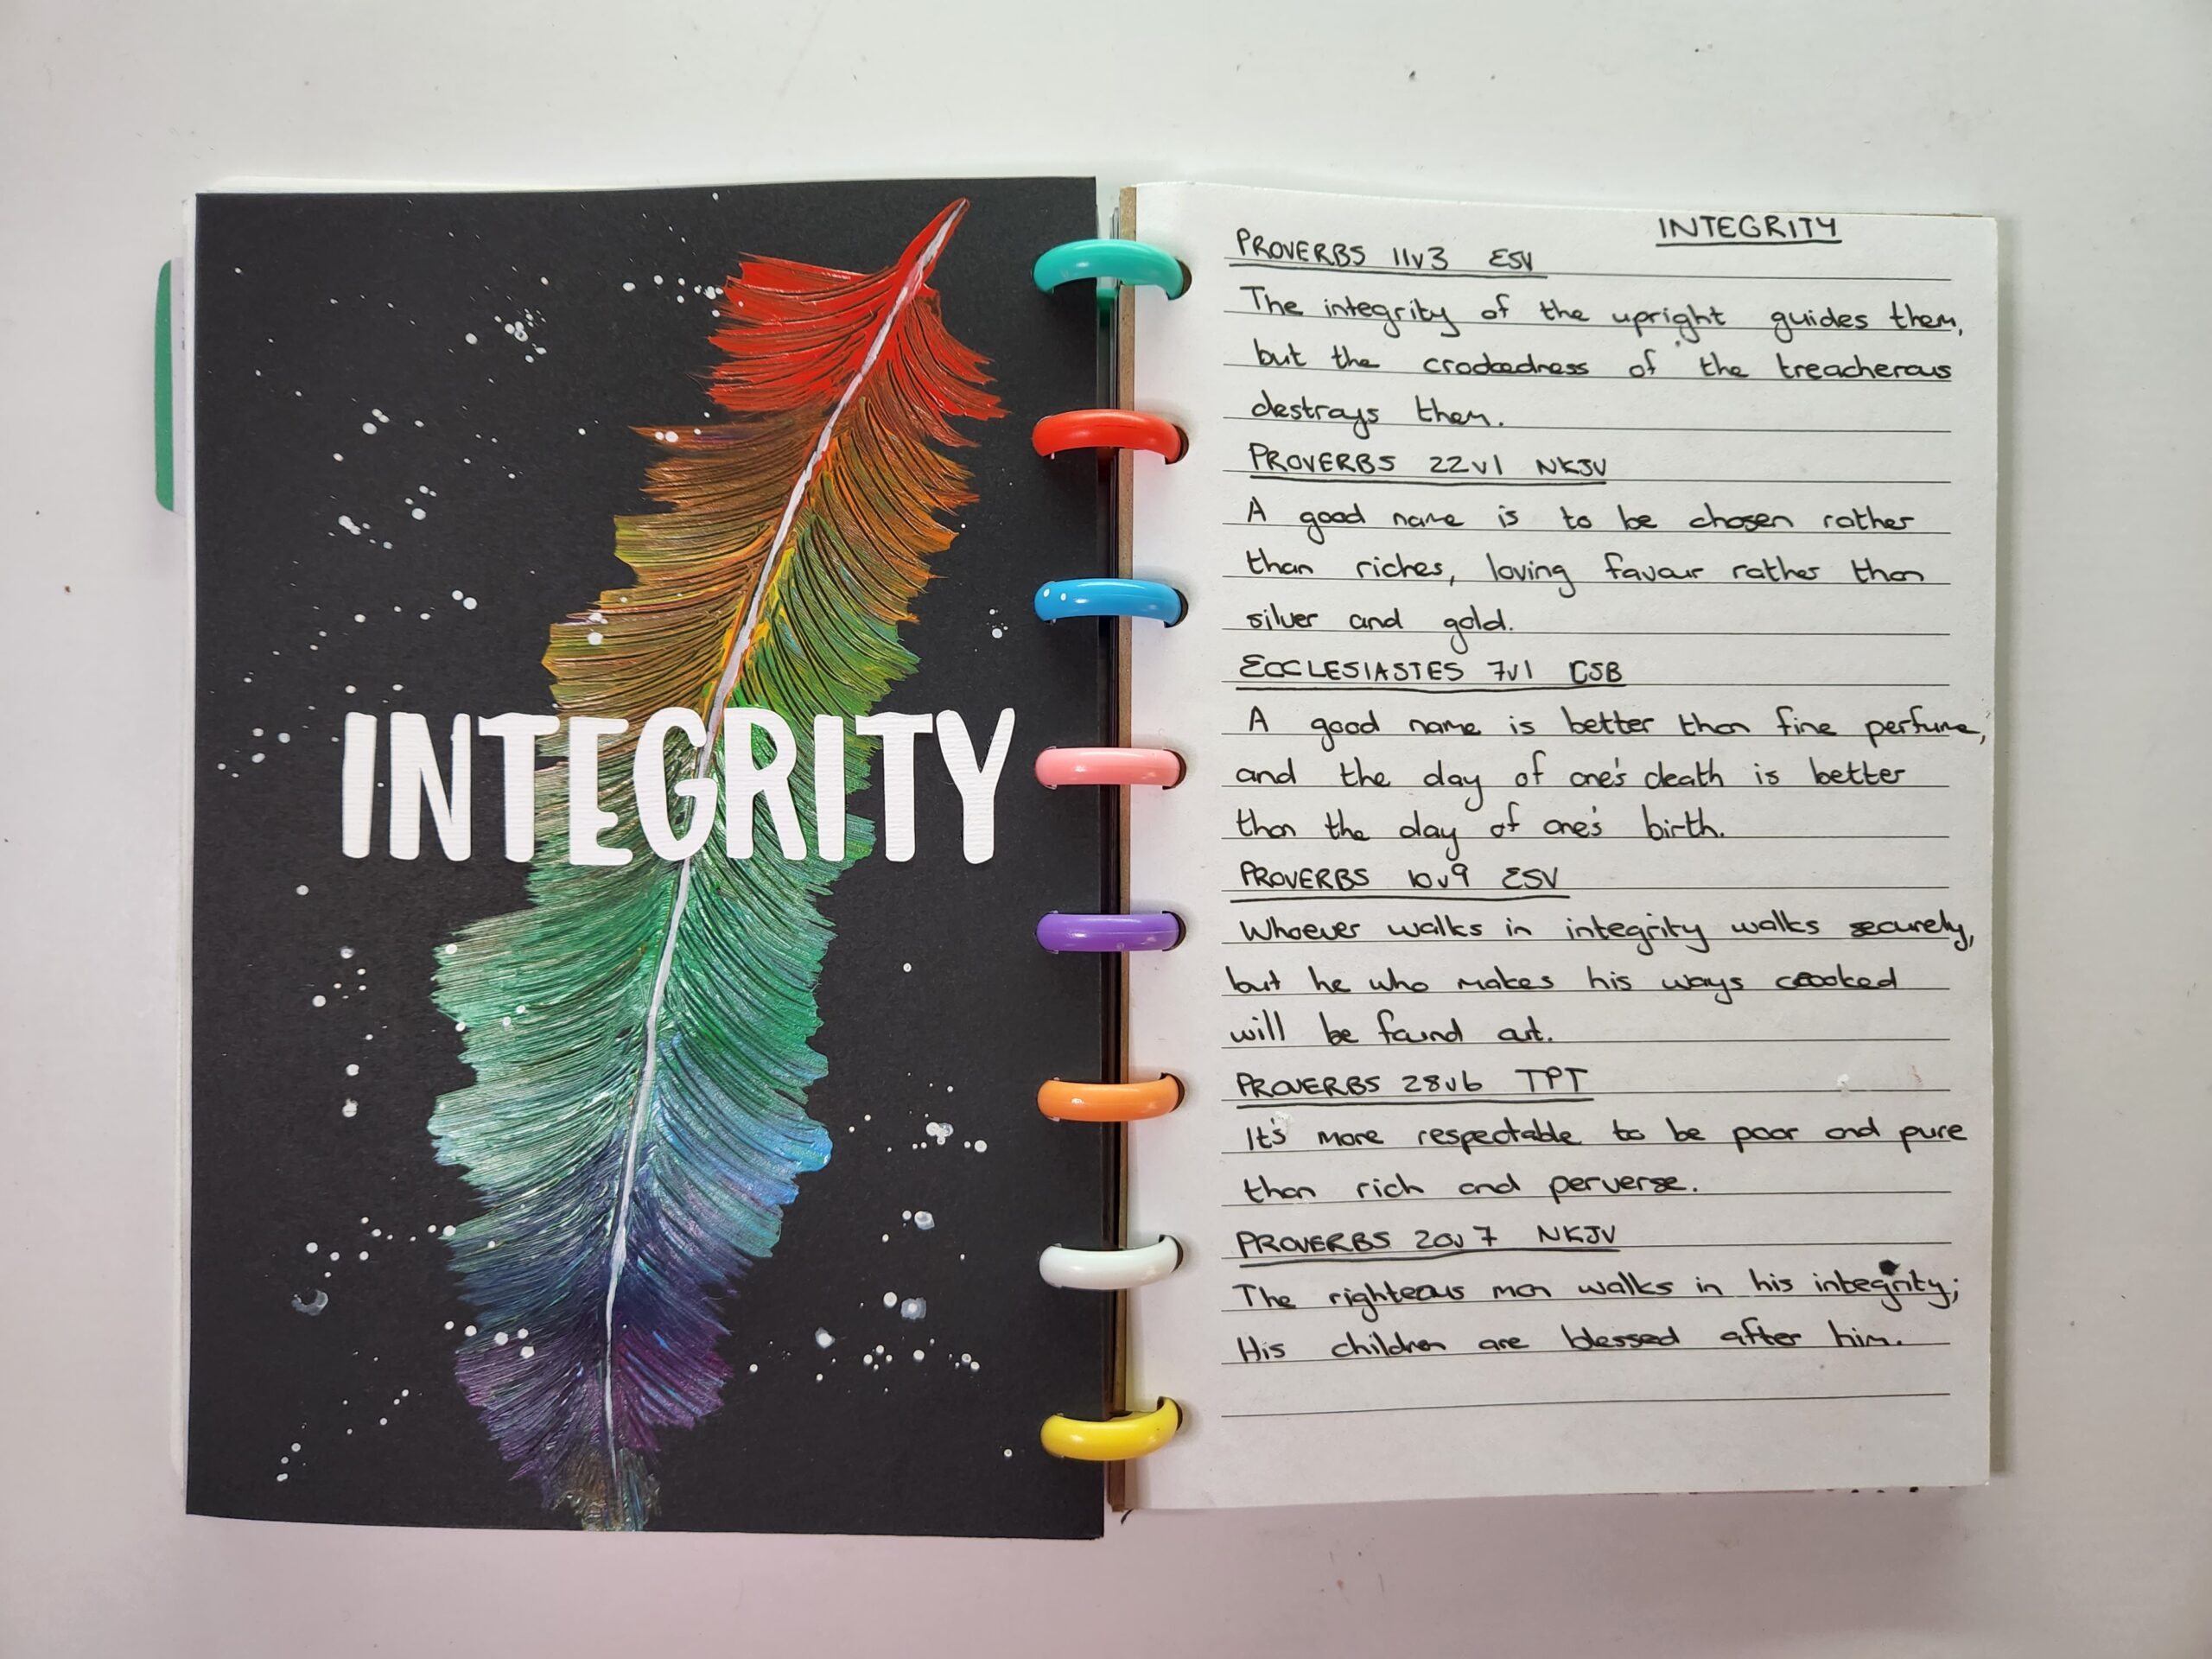 INTEGRITY
INTEGRITY
PROVERBS 11v3 ESV
The integrity of the upright guides them,
but the crookedness of the treacherous
destroys them.
PROVERBS 22v1 NKJV
A good name is to be chosen rather
than riches, loving favour rather than
silver and gold.
ECCLESIASTES 7v1 CSB
A good name is better than fine perfume,
and the day of one's death is better
than the day of one's birth.
PROVERBS 10v9 ESV
Whoever walks in integrity walks securely,
but he who makes his ways crooked
will be found out.
PROVERBS 28v6 TPT
It's more respectable to be poor and pure
than rich and perverse.
PROVERBS 20v7 NKJV
The righteous man walks in his integrity;
His children are blessed after him.